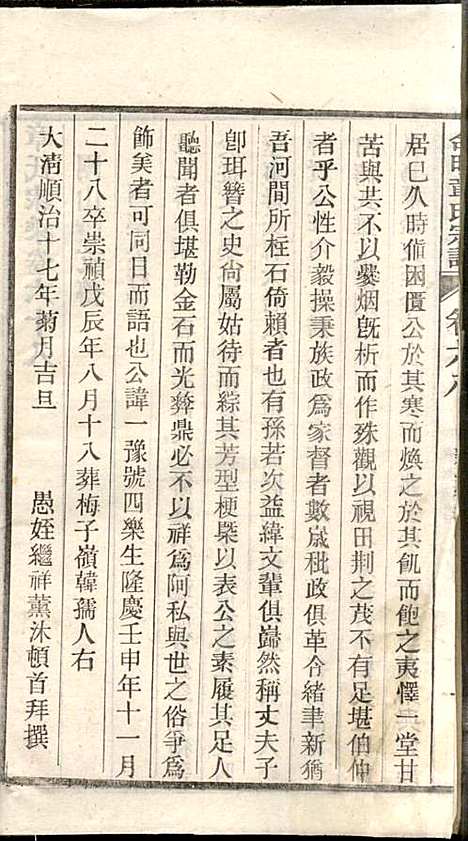 居已久時值困匱公於其寒而煥之於其飢而飽之夷懌一堂甘
苦與共不以爨烟旣析而作殊觀以視田荆之茂不有足堪伯仲
者乎公性介毅操秉族政爲家督者數嵗秕政俱革令緒聿新猶
吾河間所柱石倚賴者也有孫若次益緯文輩俱巋然稱丈夫子
卽珥簪之史尙屬姑待而綜其芳型梗槩以表公之素履其足人
聽聞者俱堪勒金石而光彝鼎必不以祥爲阿私與世之俗爭爲
飾美者可同日而語也公諱一豫號四樂生隆慶壬申年十一月
二十八卒崇禎戊辰年八月十八葬梅子嶺韓孺人右
大淸順治十七年菊月吉旦
愚姪繼祥薰沐頓首拜撰
章氏宗譜
卷六八